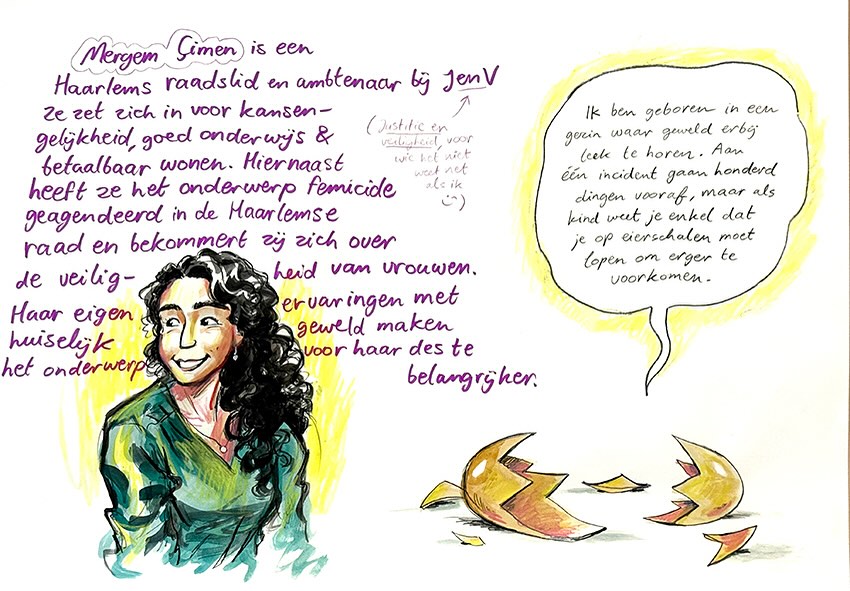 Mergem Çimen is een
Haarlems raadslid en ambtenaar bij JenV
Ze zet zich in voor kansen-
gelijkheid, goed onderwijs &
betaalbaar wonen. Hiernaast
heeft ze het onderwerp femicide
geagendeerd in de Haarlemse
raad en bekommert zij zich over
de veilig- heid van vrouwen.
Haar eigen ervaringen met
huiselijk geweld maken
het onderwerp voor haar des te
belangrijker.
(Justitie en
veiligheid, voor
wie het niet
weet net
als ik
)
Ik ben geboren in een
gezin waar geweld erbij
leek te horen. Aan
één incident gaan honderd
dingen vooraf, maar als
kind weet je enkel dat
je op eierschalen moet
lopen om erger te
voorkomen.